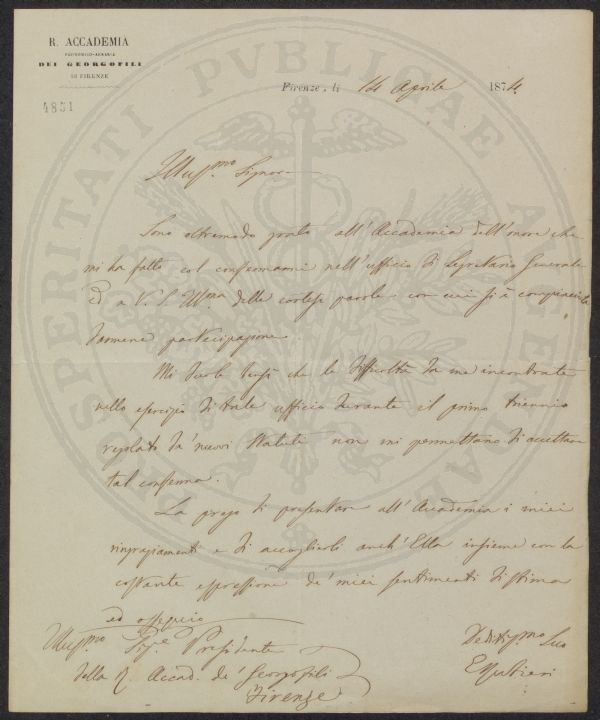 R. ACCADEMIA
ECONOMICO-AGRARIA
DEI GEORGOFILI
DI FIRENZE
4851
Firenze, li 14 Aprile 1874.
PROSPERITATI PUBLICAE AUGENDAE
Illuss.mo Signore
Sono oltremodo grato all'Accademia dell'onore che
mi ha fatto col confermarmi nell'ufficio di Segretario Generale
ed a V. S. Ill.ma delle cortesi parole con cui si è compiaciuta
darmene partecipazione.
Mi duole però che le difficoltà da me incontrate
nello esercizio di tale ufficio durante il primo triennio
regolato da' nuovi Statuti non mi permettano di accettare
tal conferma.
La prego di presentare all'Accademia i miei
ringraziamenti e di accoglierli anch'Ella insieme con la
costante espressione de' miei sentimenti di stima
ed ossequio
Illuss.mo Sig.re Presidente
della R. Accad. de' Georgofili
Firenze
Devotiss.mo Suo